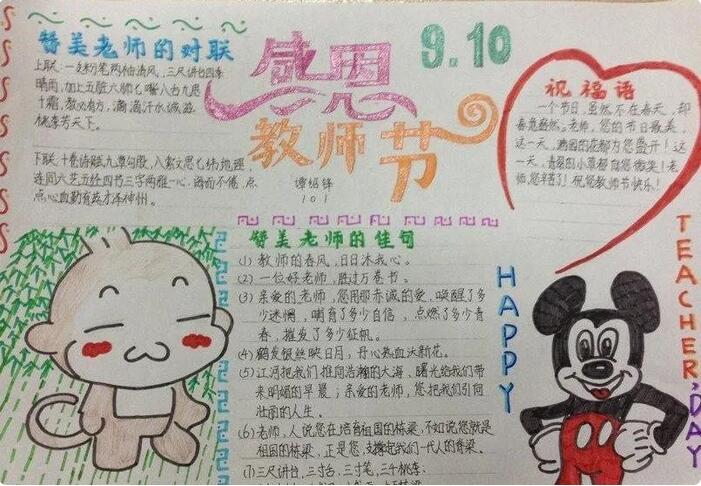 赞美老师的对联
上联:一支粉笔两袖清风,三尺讲台四季
晴雨,加上五脏六腑七嘴八舌九思
十霜,教必有方,滴滴汗水诚滋
桃李芳天下。
下联:十卷诗赋九章勾股,八索文思七纬地理,
连同六艺五经四书三字两雅一心,诲而不倦,点
点心血勤育英才泽神州。
感恩
教师节
9.10
谭绍锋
101
祝福语
一个节日,虽然不在春天,却
春意盎然。老师,您的节日最美,
这一天,满园的花都为您盛开!这
一天,青翠的小草都向您微笑!老
师,您辛苦了!祝您教师节快乐!
赞美老师的佳句
(1)教师的春风,日日沐我心。
(2)一位好老师,胜过万卷书。
(3)亲爱的老师,您用那赤诚的爱,唤醒了多
少迷惘,哺育了多少自信,点燃了多少青
春,摧发了多少征帆。
(4)鹤发银丝映日月,丹心热血沃新花。
(5)江河把我们推向浩瀚的大海,曙光给我们带
来明媚的早晨;亲爱的老师,您把我们引向
壮丽的人生。
(6)老师,人说您在培育祖国的栋梁,不如说您就是
祖国的栋梁,正是您,支撑起我们一代人的脊梁。
(7)三尺讲台,三寸舌,三寸笔,三千桃李;
HAPPY
TEACHER,DAY